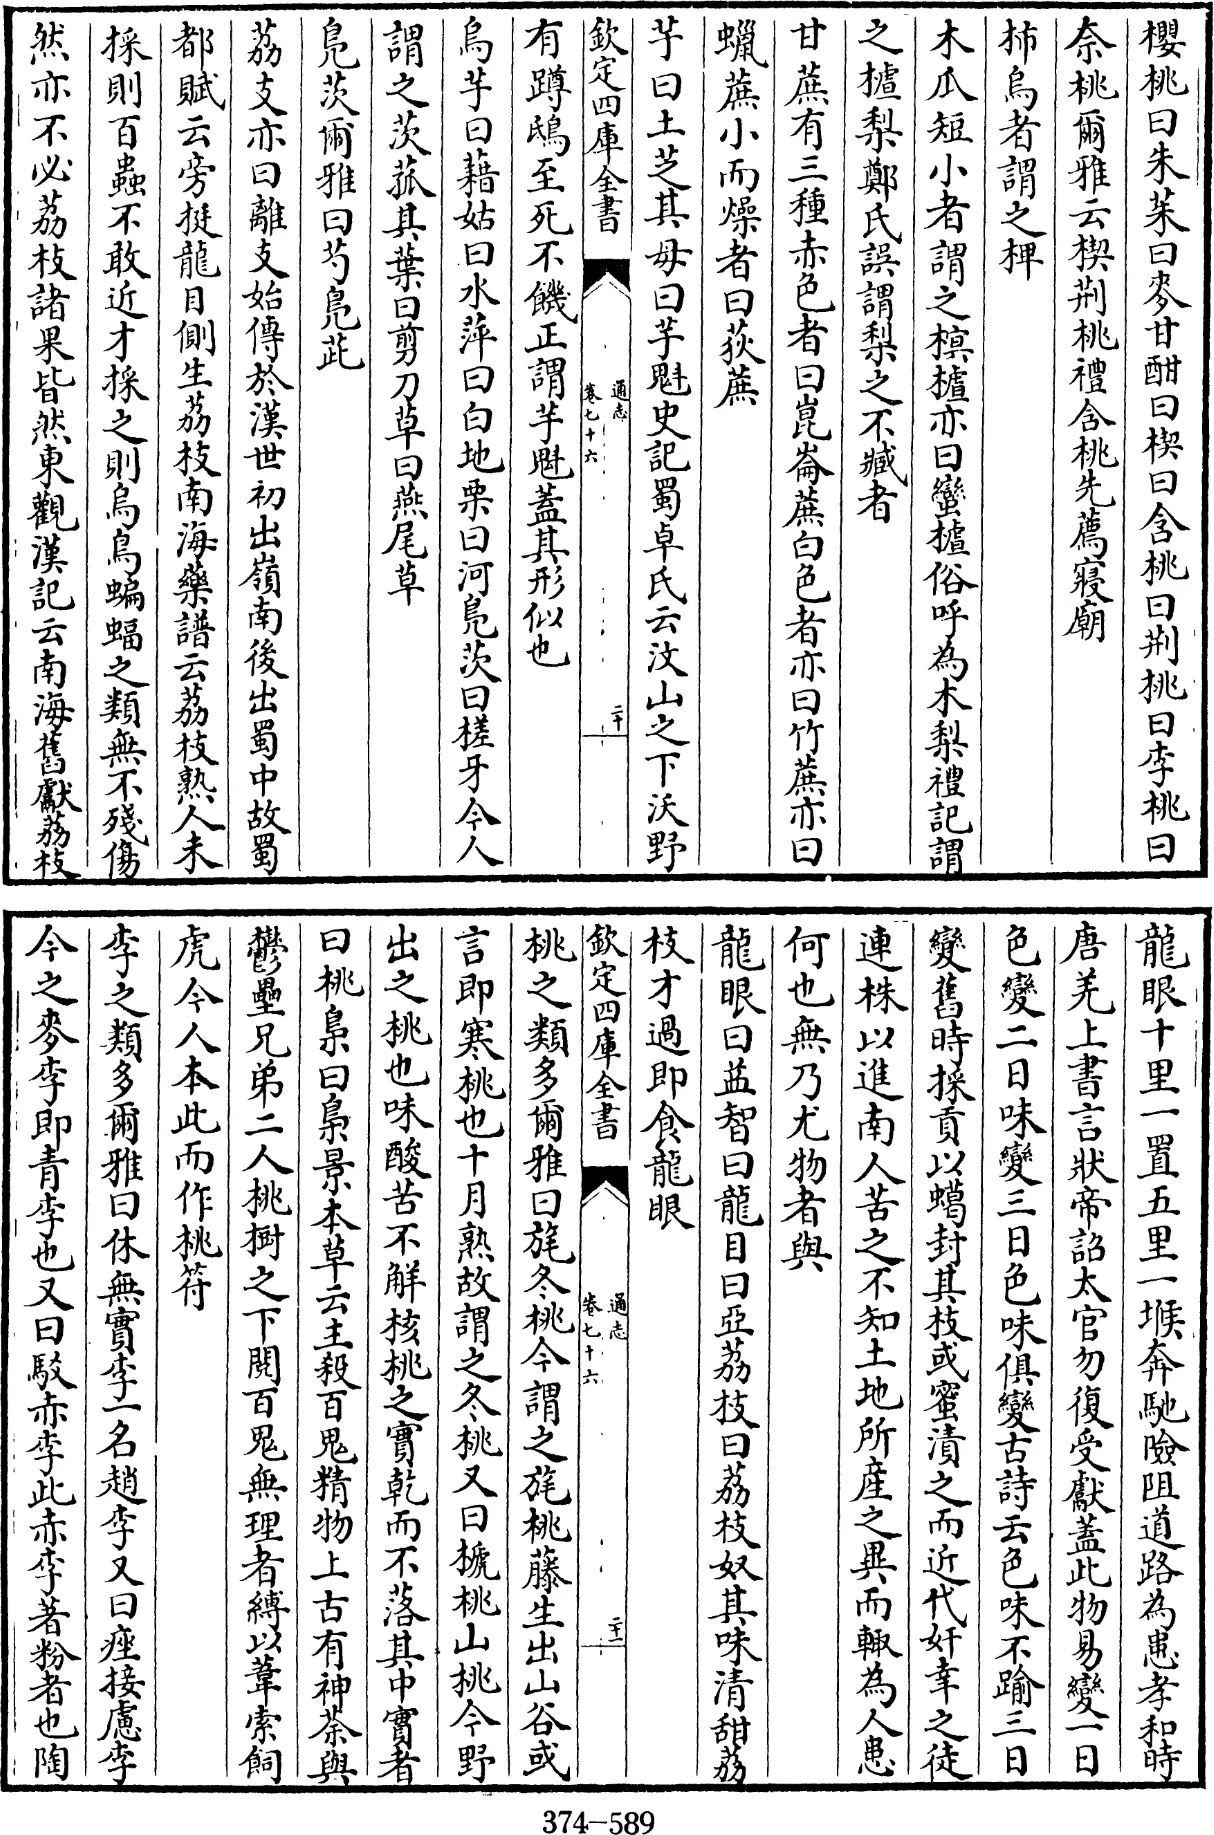 櫻桃曰朱茱曰麥甘酣曰楔曰含桃曰荆桃曰李桃曰
柰桃爾雅云楔荆桃禮含桃先薦寢廟
柿烏者謂之椑
木瓜短小者謂之榠樝亦曰蠻樝俗呼為木梨禮記謂
之樝梨鄭氏誤謂梨之不臧者
甘蔗有三種赤色者曰崑崙蔗白色者亦曰竹蔗亦曰
蠟蔗小而燥者曰荻蔗
芋曰土芝其母曰芋魁史記蜀卓氏云汶山之下沃野
欽定四庫全書
通志
卷七十六
二十
有蹲鴟至死不饑正謂芋魁蓋其形似也
烏芋曰藉姑曰水萍曰白地栗曰河鳧茨曰槎牙今人
謂之茨菰其葉曰剪刀草曰燕尾草
鳧茨爾雅曰芍鳧茈
荔支亦曰離支始傳於漢世初出嶺南後出蜀中故蜀
都賦云旁挺龍目側生荔枝南海藥譜云荔枝熟人未
採則百蟲不敢近才採之則烏鳥蝙蝠之類無不殘傷
然亦不必荔枝諸果皆然東觀漢記云南海舊獻荔枝
龍眼十里一置五里一堠奔馳險阻道路為患孝和時
唐羌上書言狀帝詔太官勿復受獻蓋此物易變一日
色變二日味變三日色味俱變古詩云色味不踰三日
變舊時採貢以蠟封其枝或蜜漬之而近代奸幸之徒
連株以進南人苦之不知土地所産之異而輙為人患
何也無乃尤物者與
龍眼曰益智曰龍目曰亞荔枝曰荔枝奴其味清甜荔
枝才過即食龍眼
欽定四庫全書
通志
卷七十六
二十一
桃之類多爾雅曰旄冬桃今謂之旄桃藤生出山谷或
言即寒桃也十月熟故謂之冬桃又曰榹桃山桃今野
出之桃也味酸苦不解核桃之實乾而不落其中實者
曰桃梟曰梟景本草云主殺百鬼精物上古有神荼與
鬱壘兄弟二人桃樹之下閱百鬼無理者縛以葦索飼
虎今人本此而作桃符
李之類多爾雅曰休無實李一名趙李又曰痤接慮李
今之麥李即青李也又曰駁赤李此赤李著粉者也陶
374-589